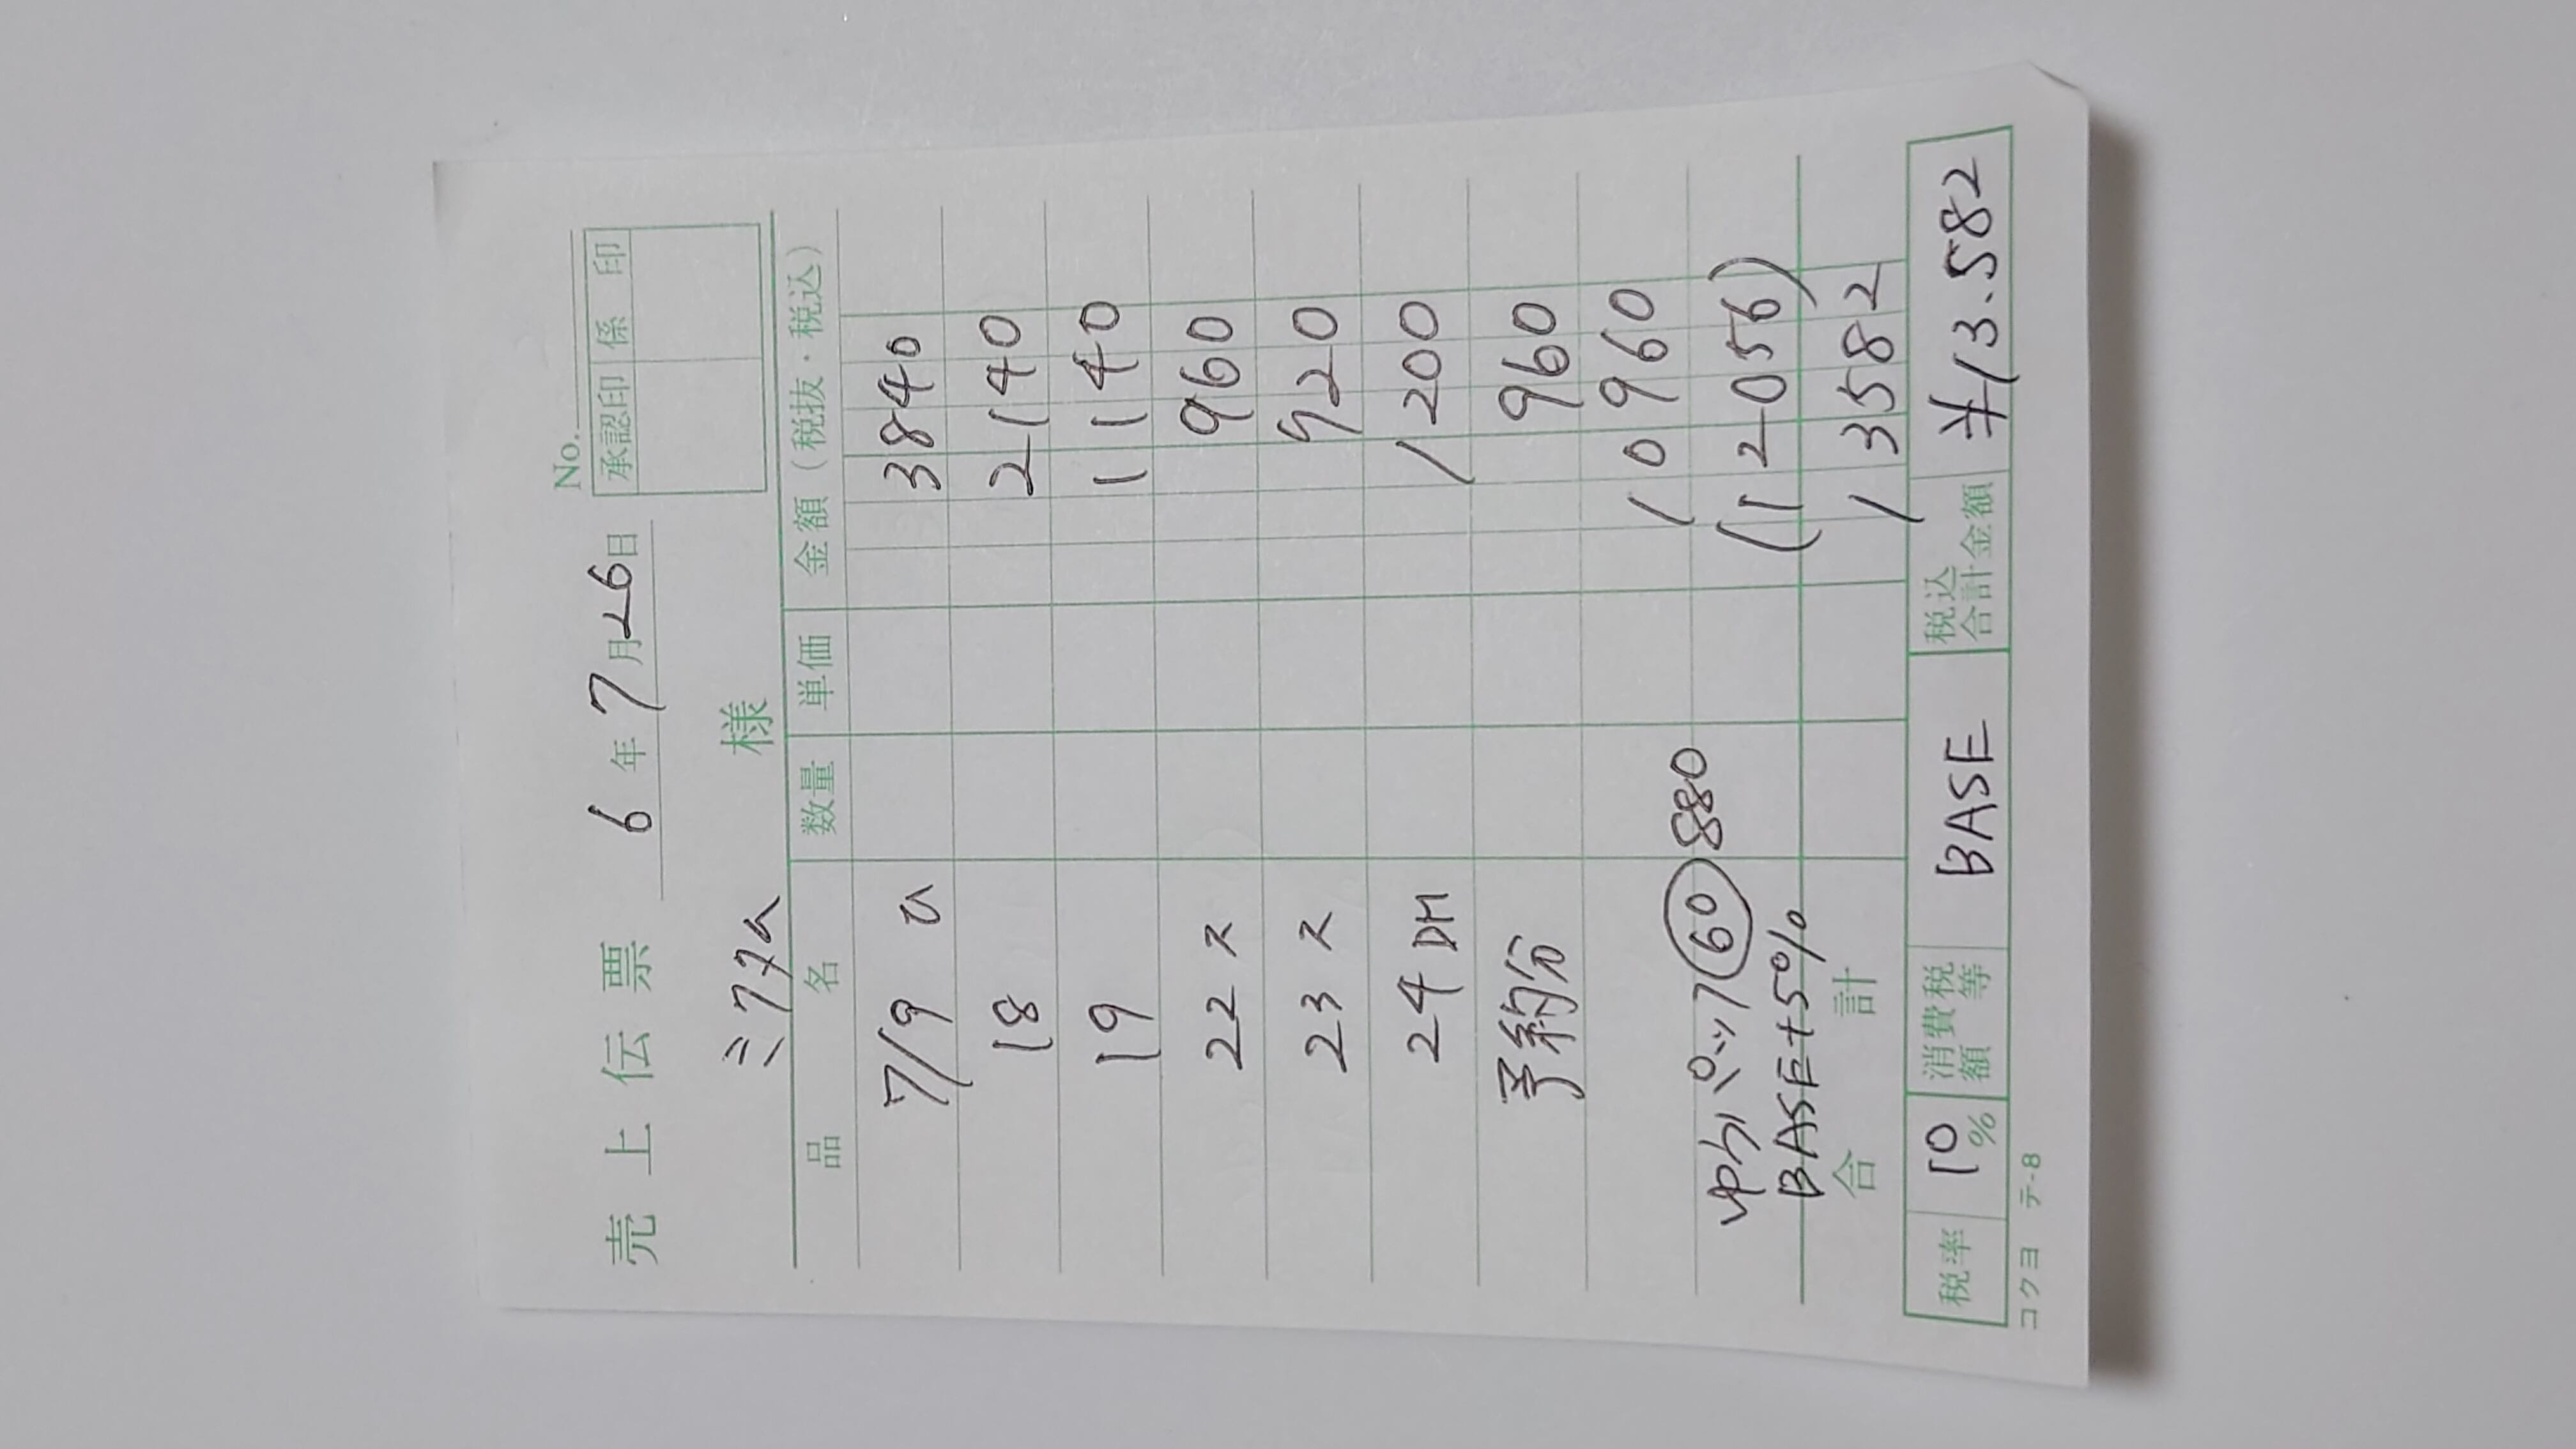 売上伝票 6年7月26日 No.
承認印 係印
ミワマム 様
品名 数量 単価 金額(税抜・税込)
7/9 3840
18 2140
19 1140
22 ス 960
23 ス 920
24 DM 1200
予約分 960
10960
ゆうパック 60 880 (12056)
BASE+5%
合計 13582
税率 10% 消費税額等 BASE 税込合計金額 ¥13.582
コクヨ テ-8